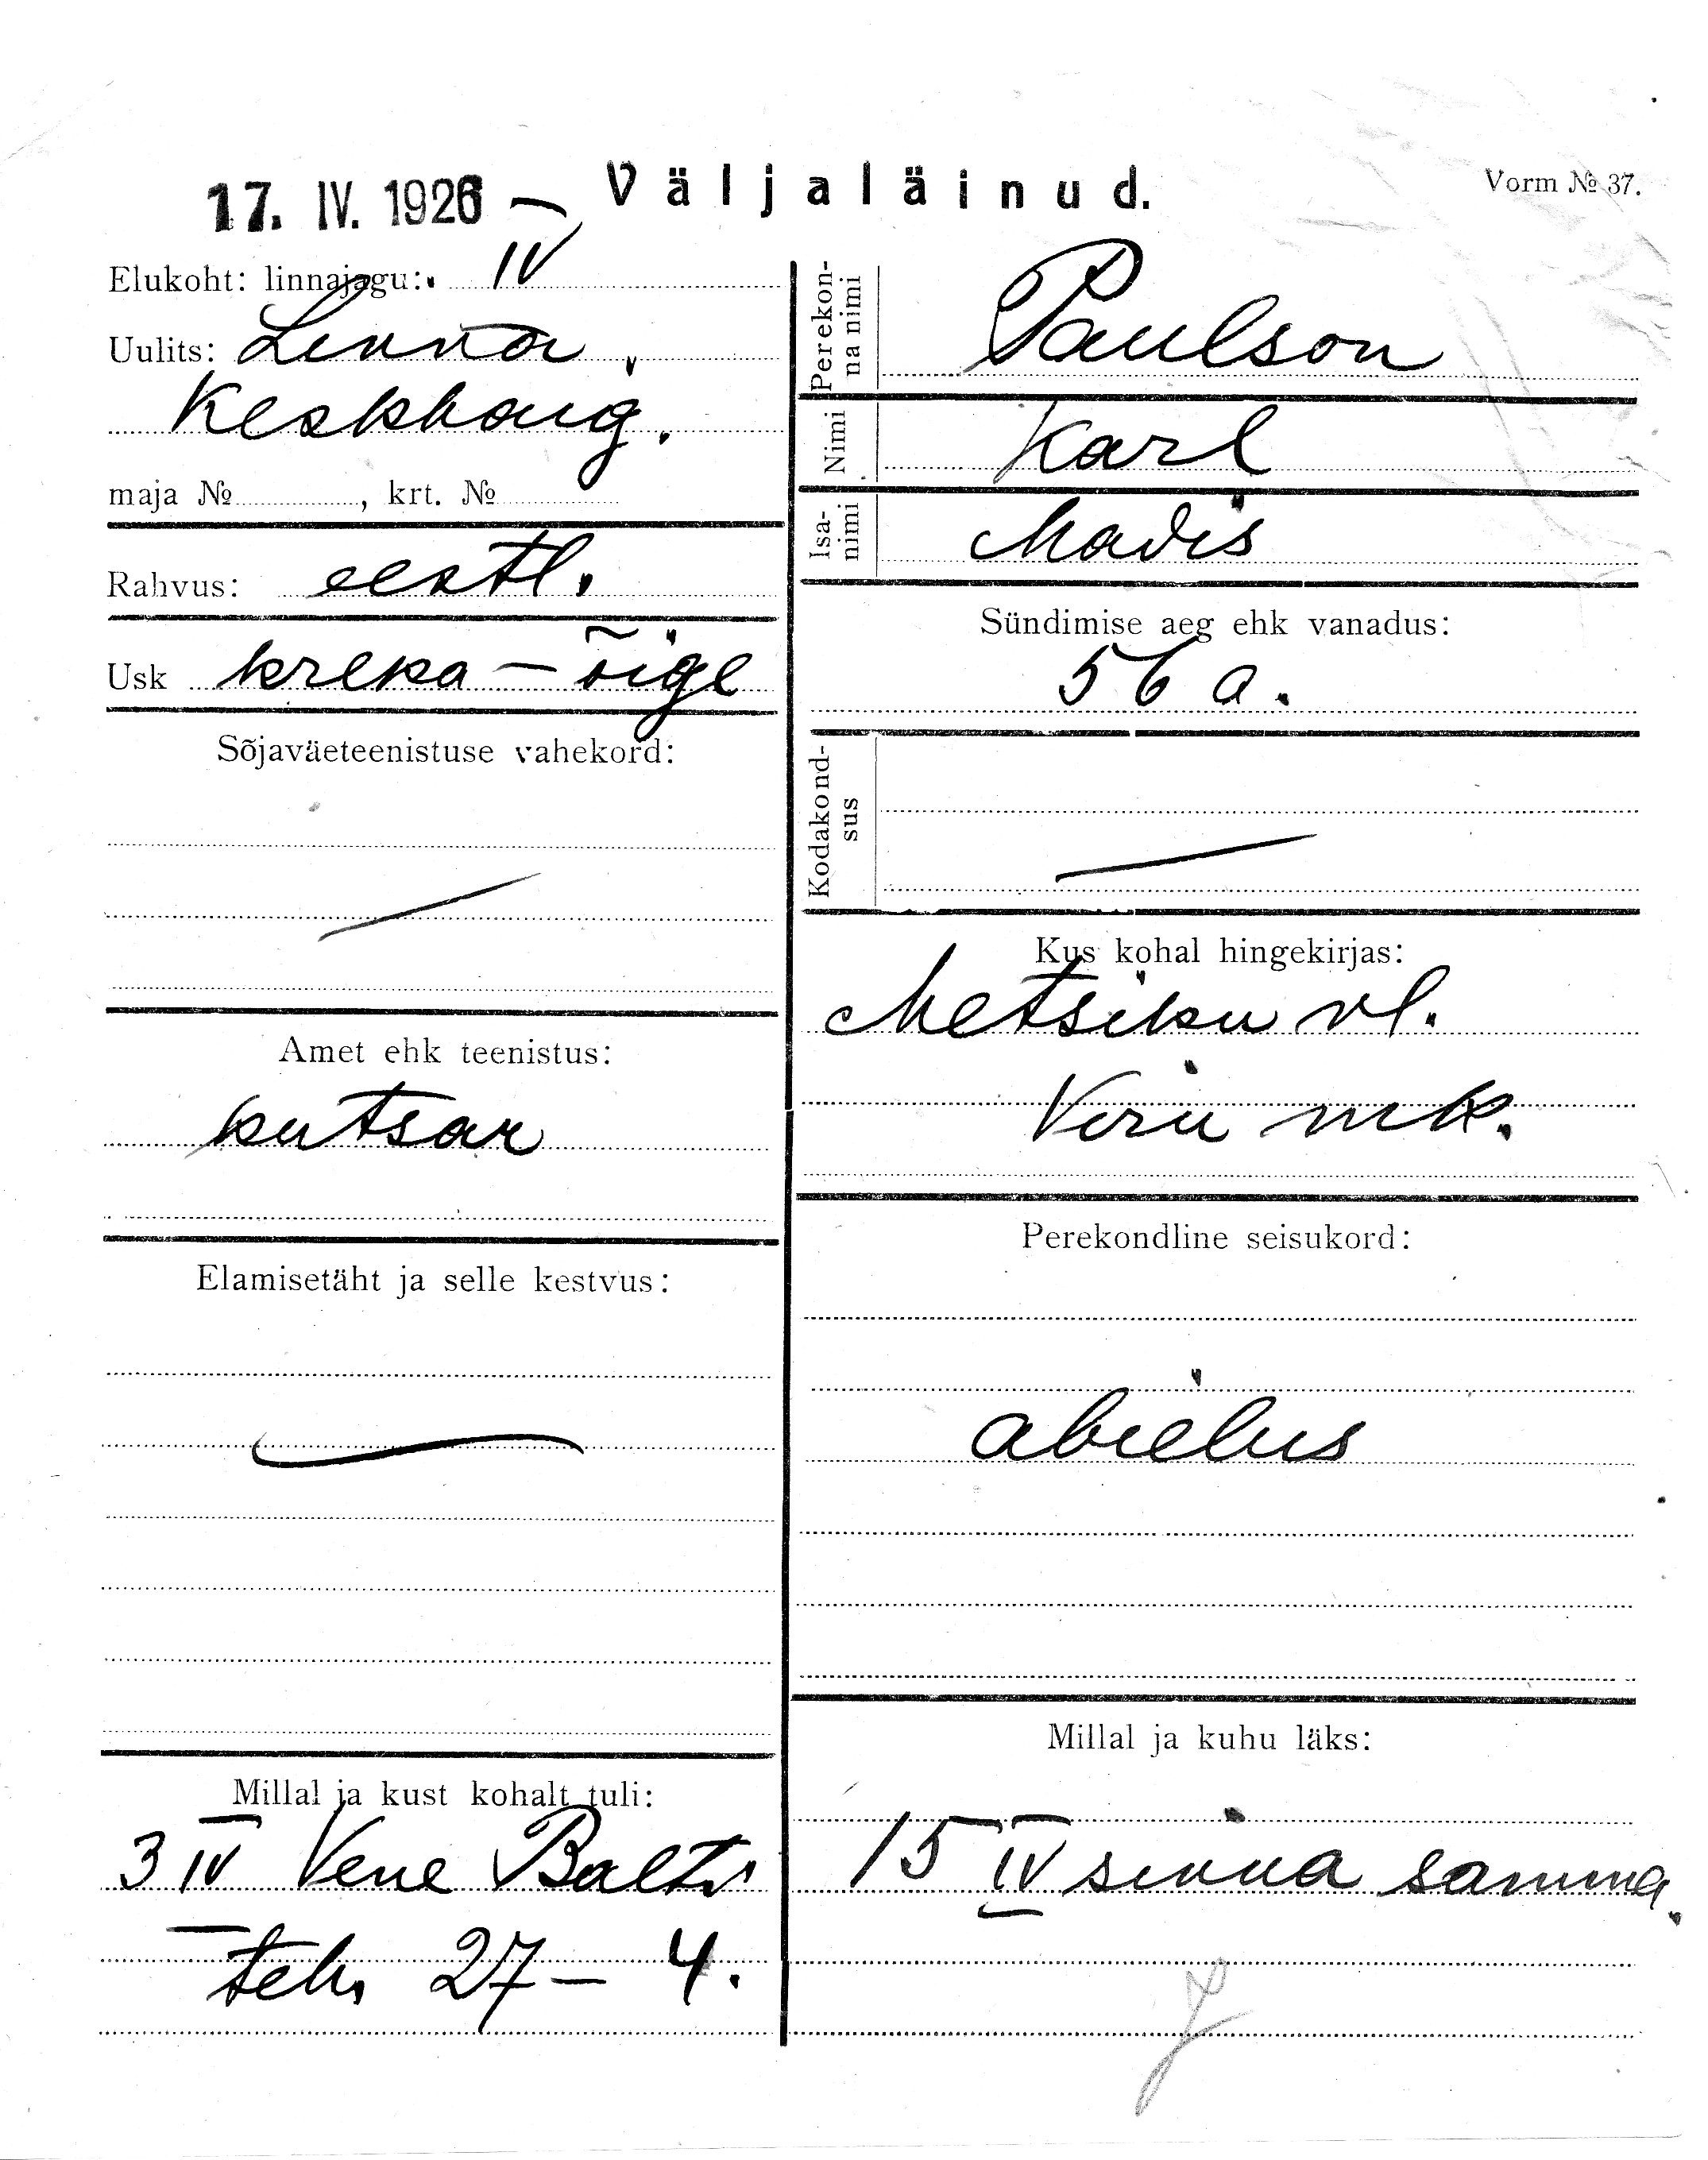 17. IV. 1926 — Väljaläinud.
Vorm № 37.
Elukoht: linnajagu: IV
Uulits: Linna
Keskhaig.
maja № , krt. №
Rahvus: eestl.
Usk kreka-õige
Sõjaväeteenistuse vahekord:
—
Amet ehk teenistus:
kutsar
Elamisetäht ja selle kestvus:
—
Millal ja kust kohalt tuli:
3 IV Vene Balti
teh. 27 – 4.
Perekonna nimi Paulson
Nimi Karl
Isanimi Madis
Sündimise aeg ehk vanadus:
56 a.
Kodakondsus —
Kus kohal hingekirjas:
Metsiku vl.
Viru mk.
Perekondline seisukord:
abielus
Millal ja kuhu läks:
15 IV sinna samma.